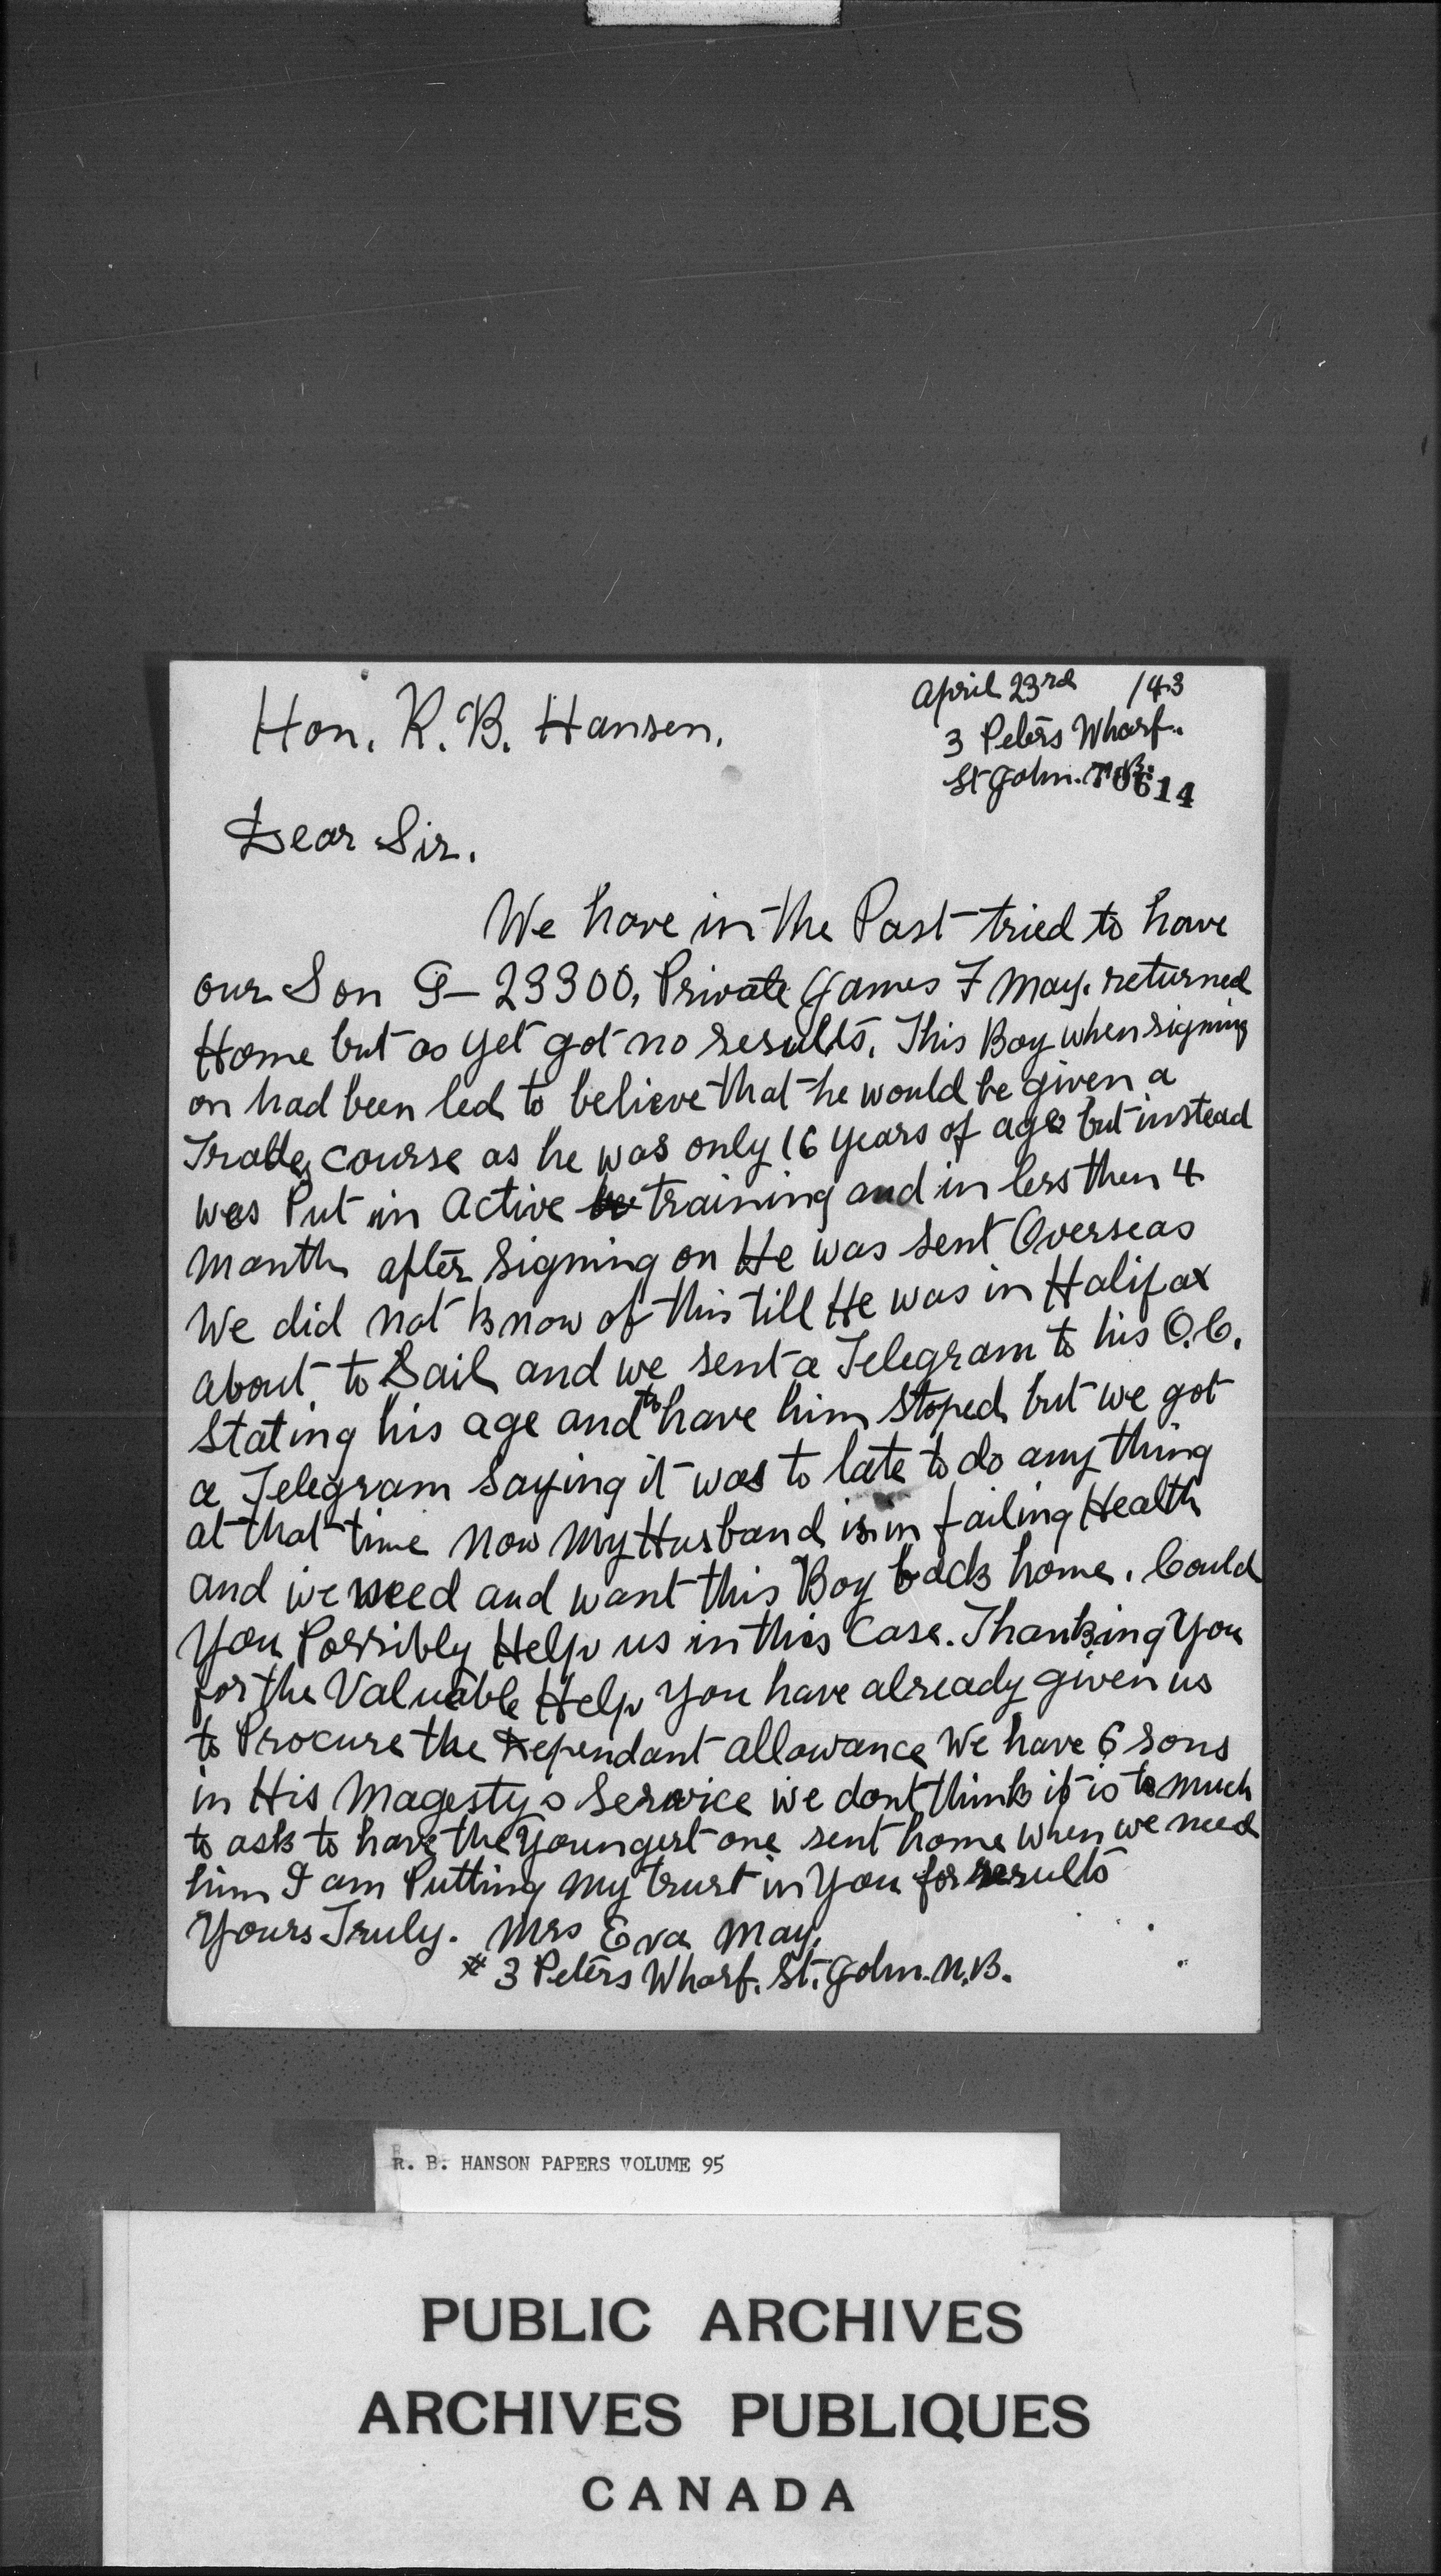 April 23rd /43
Hon. R. B. Hansen.
3 Peters Wharf.
St John. N.B.
70614
Dear Sir.
We have in the Past tried to have
our Son G-23300, Private James F May. returned
Home but as yet got no results. This Boy when signing
on had been led to believe that he would be given a
Trade course as he was only 16 years of age but instead
was Put in Active training and in less then 4
month after signing on He was sent Overseas
We did not know of this till He was in Halifax
about to Sail and we sent a Telegram to his O.C.
stating his age and to have him stoped but we got
a Telegram saying it was to late to do any thing
at that time Now My Husband is in failing Health
and we need and want this Boy back home. Could
You Possibly Help us in this Case. Thanking You
for the Valuable Help You have already given us
to Procure the Dependant allowance We have 6 sons
in His Magestys Service we dont think it is to much
to ask to have the Youngest one sent home when we need
him I am Putting My trust in You for results
Yours Truly. Mrs Eva May.
# 3 Peters Wharf. St. John. N.B.
R. B. HANSON PAPERS VOLUME 95
PUBLIC ARCHIVES
ARCHIVES PUBLIQUES
CANADA